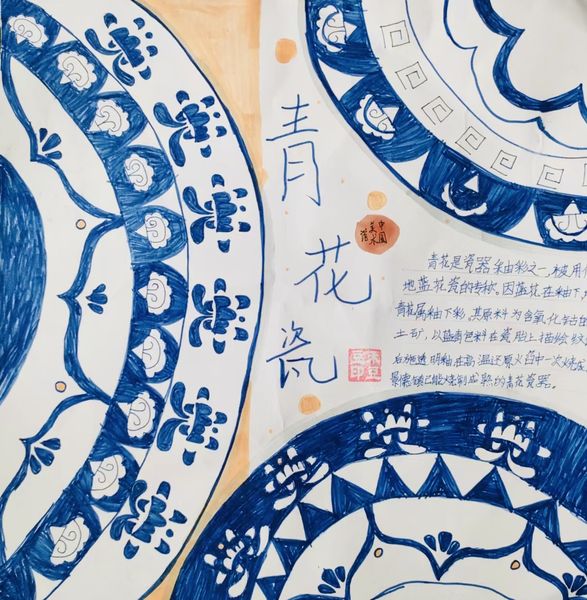 青花瓷
中国
青花是瓷器釉彩之一,被用
地蓝花瓷的专称。因蓝花在釉下
青花属釉下彩。其原料为含氧化钴的
土矿,以蓝青色料在瓷胎上描绘纹
后施透明釉在高温还原火焰中一次烧成
景德镇已能烧制成熟的青花瓷器。